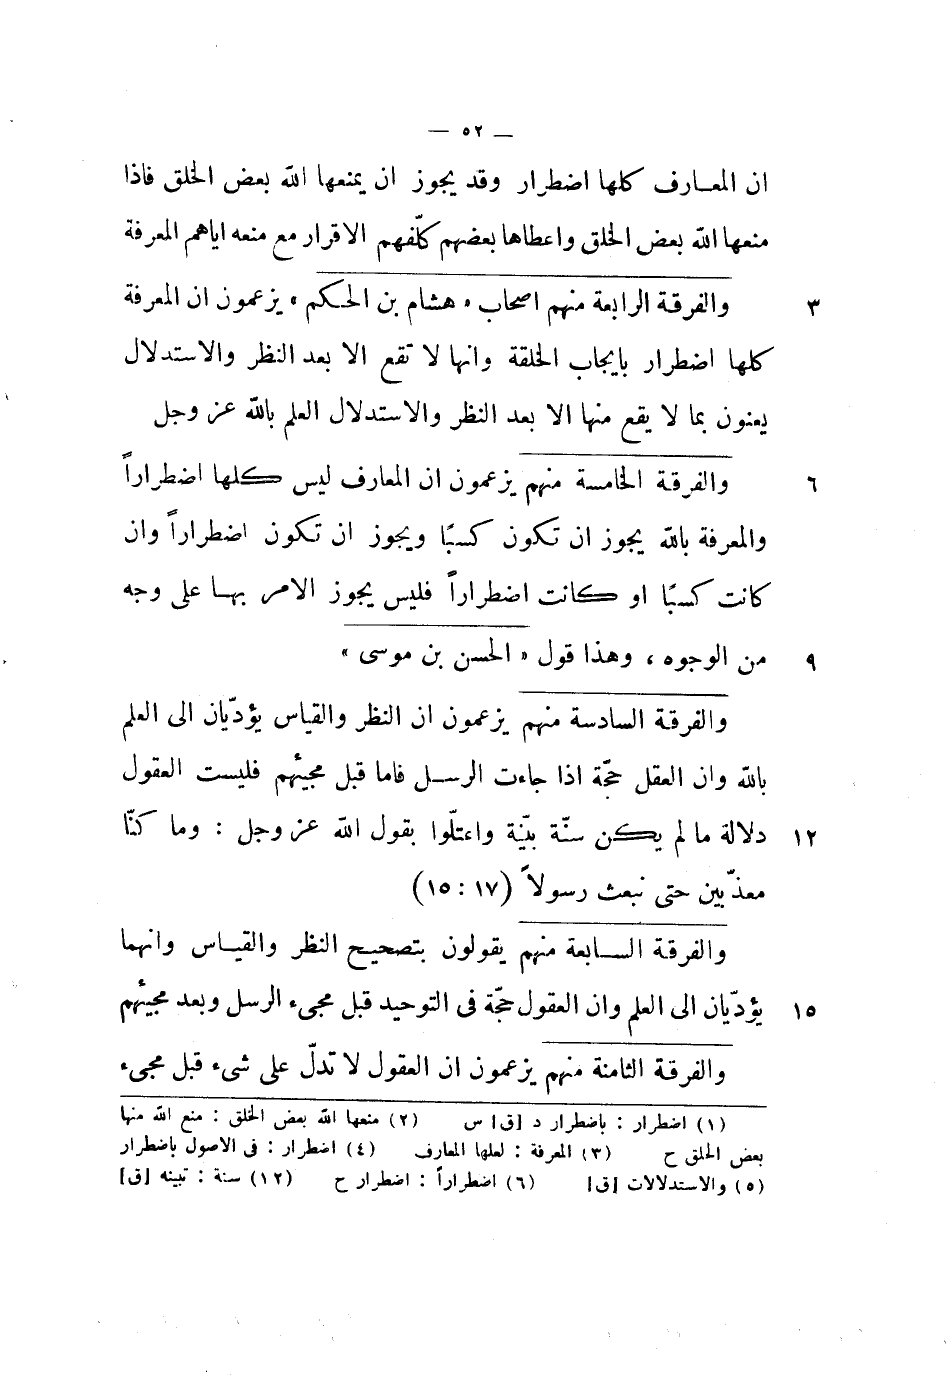 — ٥٢ —
ان المعارف كلها اضطرار وقد يجوز ان يمنعها الله بعض الخلق فاذا
منعها الله بعض الخلق واعطاها بعضهم كلّفهم الاقرار مع منعه اياهم المعرفة
٣ والفرقة الرابعة منهم اصحاب « هشام بن الحكم » يزعمون ان المعرفة
كلها اضطرار بايجاب الخلقة وانها لا تقع الا بعد النظر والاستدلال
يعنون بما لا يقع منها الا بعد النظر والاستدلال العلم بالله عز وجل
٦ والفرقة الخامسة منهم يزعمون ان المعارف ليس كلها اضطراراً
والمعرفة بالله يجوز ان تكون كسبًا ويجوز ان تكون اضطراراً وان
كانت كسبًا او كانت اضطراراً فليس يجوز الامر بها على وجه
٩ من الوجوه ، وهذا قول « الحسن بن موسى »
والفرقة السادسة منهم يزعمون ان النظر والقياس يؤدّيان الى العلم
بالله وان العقل حجّة اذا جاءت الرسل فاما قبل مجيئهم فليست العقول
١٢ دلالة ما لم يكن سنّة بيّنة واعتلّوا بقول الله عز وجل : وما كنّا
معذّبين حتى نبعث رسولاً (١٧ : ١٥)
والفرقة السابعة منهم يقولون بتصحيح النظر والقياس وانهما
١٥ يؤدّيان الى العلم وان العقول حجّة فى التوحيد قبل مجىء الرسل وبعد مجيئهم
والفرقة الثامنة منهم يزعمون ان العقول لا تدلّ على شىء قبل مجىء
(١) اضطرار : باضطرار د [ق] س (٢) منعها الله بعض الخلق : منع الله منها
بعض الخلق ح (٣) المعرفة : لعلها المعارف (٤) اضطرار : فى الاصول باضطرار
(٥) والاستدلالات [ق] (٦) اضطراراً : اضطرار ح (١٢) سنة : تبينه [ق]